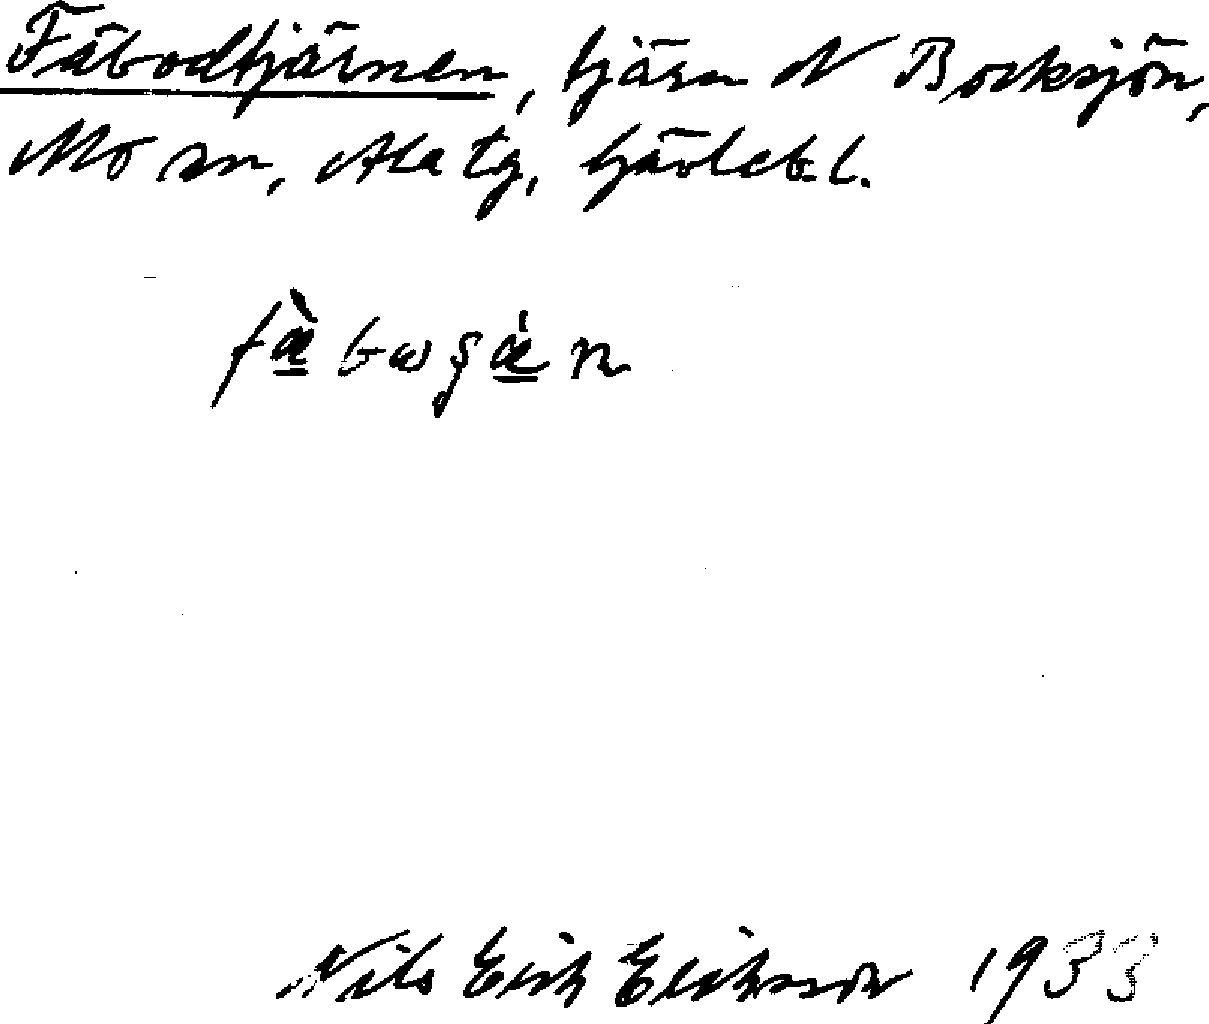 Fäbodtjärnen, tjärn N Bocksjön,
Mo sn, Ala tg, Gävleb. l.
fæ̀bωʂæ̀n
Nils Erik Eriksson 1933